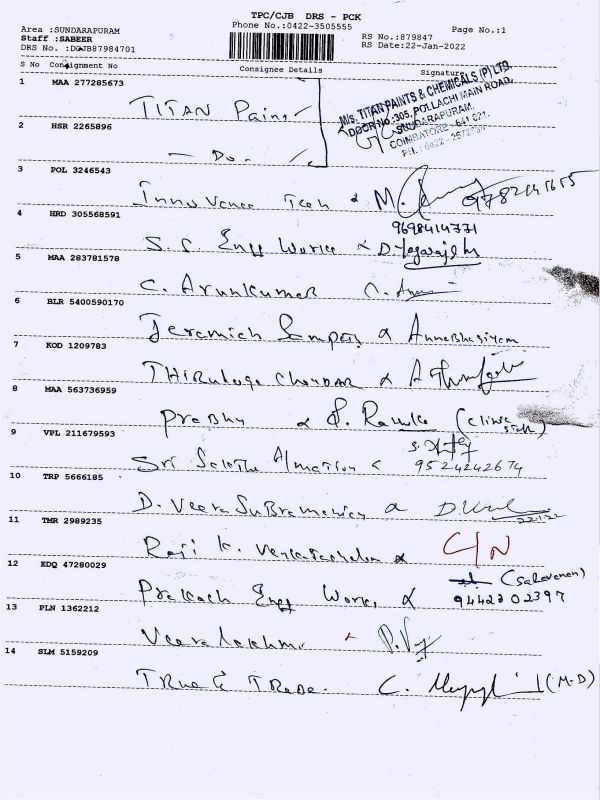 TPC/CJB DRS - PCK
Area :SUNDARAPURAM Phone No.:0422-3505555 Page No.:1
Staff :SABEER RS No.:879847
DRS No. :DGJB87984701 RS Date:22-Jan-2022
S No Consignment No Consignee Details Signature
1 MAA 277285673
TITAN Paint
M/s. TITAN PAINTS & CHEMICALS (P) LTD.
DOOR No:305, POLLACHI MAIN ROAD,
SUNDARAPURAM,
COIMBATORE - 641 021.
PH.: 0422 -
2 HSR 2265896
- Do -
3 POL 3246543
Innovance Tech & M.
4 HRD 305568591
9698414771
S. S. Engg Works
5 MAA 283781578
C. ArunKumar
6 BLR 5400590170
Jeremich
7 KOD 1209783
8 MAA 563736959
Prabhu (Clinic
9 VPL 211679593
Sri 9524242674
10 TRP 5666185
D. VeeraSubramaniam
22.1.22
11 TMR 2989235
Raji K. Venkatachalam C/N
12 EDQ 47280029
(Saravanan)
Prakash Engg Works 9442202397
13 PLN 1362212
Veeralakhmi
14 SLM 5159209
True & Trade. C. (M-D)